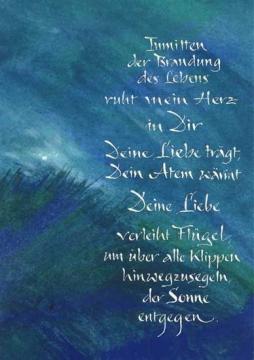 Inmitten
der Brandung
des Lebens
ruht mein Herz
in Dir
Deine Liebe trägt,
Dein Atem wärmt
Deine Liebe
verleiht Flügel,
um über alle Klippen
hinwegzusegeln,
der Sonne
entgegen.